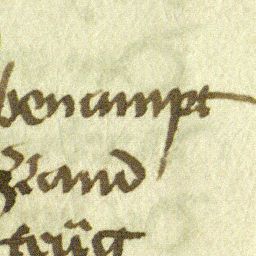 benampt
Brand
trüg